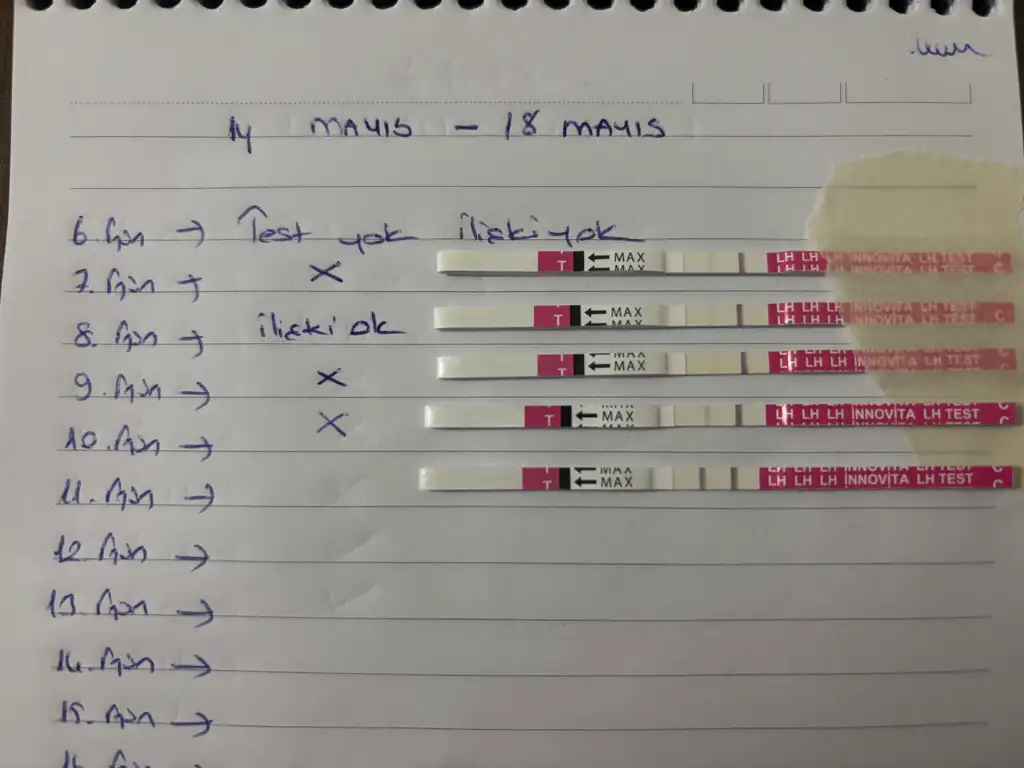 14 MAYIS - 18 MAYIS
6. Gün → Test yok ilişki yok
7. Gün → X T ← MAX MAX LH LH INNOVITA LH TEST C
8. Gün → ilişki ok T ← MAX MAX LH LH LH INNOVITA LH TEST C
9. Gün → X T ← MAX MAX LH LH LH INNOVITA LH TEST
10. Gün → X T ← MAX LH LH LH INNOVITA LH TEST C
11. Gün → T ← MAX MAX LH LH LH INNOVITA LH TEST C
12. Gün →
13. Gün →
14. Gün →
15. Gün →